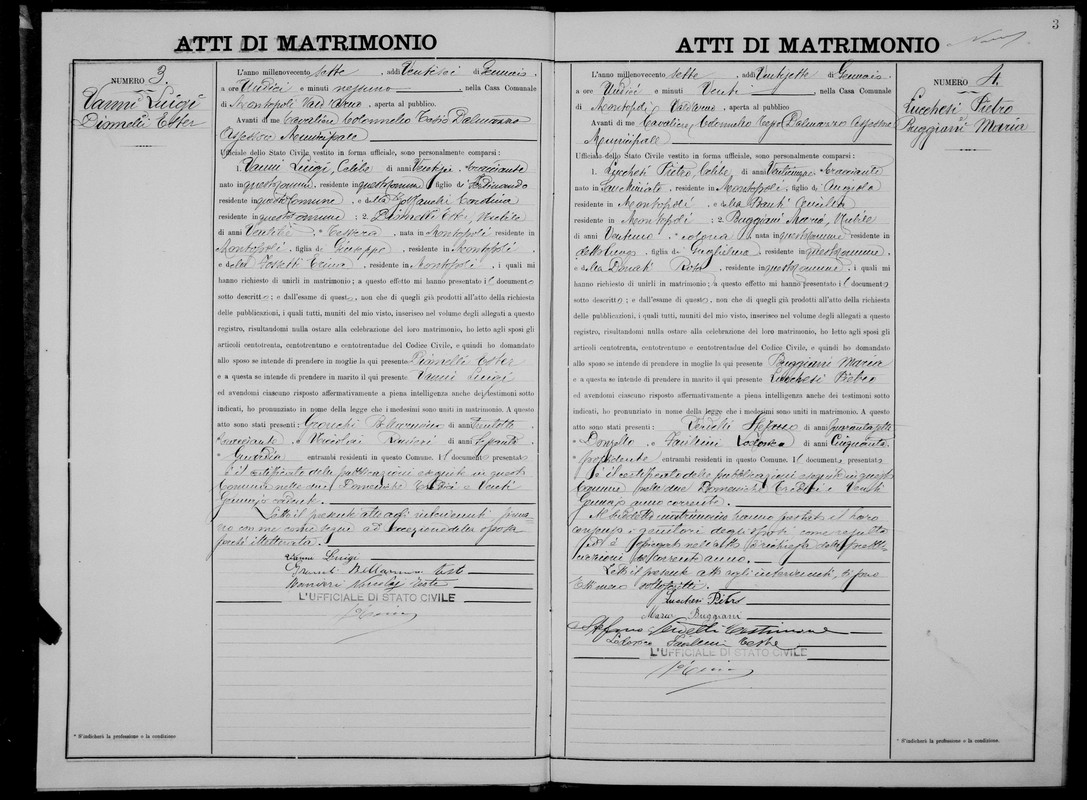 ATTI DI MATRIMONIO
NUMERO 3.
Vanni Luigi
Diomelli Ester
L'anno millenovecento sette, addì Ventisei di Gennaio,
a ore Undici e minuti nessuno, nella Casa Comunale
di Montopoli Vald'arno, aperta al pubblico.
Avanti di me Cavaliere Colonnello Dalmazzo
Assessore Municipale
Ufficiale dello Stato Civile, vestito in forma ufficiale, sono personalmente comparsi:
1. Vanni Luigi, Celibe di anni bracciante
nato in questo comune, residente in questo comune figlio di Ferdinando
residente in questo Comune e della
residente in questo comune; 2 Diomelli Ester, Nubile
di anni, nata in Montopoli residente in
Montopoli, figlia di Giuseppe residente in Montopoli
e della, residente in Montopoli, i quali mi
hanno richiesto di unirli in matrimonio; a questo effetto mi hanno presentato il documento
sotto descritto; e dall'esame di questo, non che di quegli già prodotti all'atto della richiesta
delle pubblicazioni, i quali tutti, muniti del mio visto, inserisco nel volume degli allegati a questo
registro, risultandomi nulla ostare alla celebrazione del loro matrimonio, ho letto agli sposi gli
articoli centotrenta, centotrentuno e centotrentadue del Codice Civile, e quindi ho domandato
allo sposo se intende di prendere in moglie la qui presente Diomelli Ester
e a questa se intende di prendere in marito il qui presente Vanni Luigi
ed avendomi ciascuno risposto affermativamente a piena intelligenza anche dei testimoni sotto
indicati, ho pronunziato in nome della legge che i medesimi sono uniti in matrimonio. A questo
atto sono stati presenti: di anni
bracciante, e Nicolai di anni Sessanta
Guardia entrambi residenti in questo Comune. Il documento presentato
è il certificato delle pubblicazioni eseguite in questo
Comune nelle due Domeniche Tredici e Venti
Gennaio cadente.
Letto il presente atto agli intervenuti, firma-
no con me come segue ad eccezione della sposa
perché illetterata.
Vanni Luigi
Teste
Nicolai Teste
L'UFFICIALE DI STATO CIVILE
* S'indicherà la professione o la condizione.
3
ATTI DI MATRIMONIO
NUMERO 4.
Lucchesi Pietro
Buggiani Maria
L'anno millenovecento sette, addì Ventisette di Gennaio,
a ore Undici e minuti Venti, nella Casa Comunale
di Montopoli Valdarno, aperta al pubblico
Avanti di me Cavaliere Colonnello Dalmazzo Assessore
Municipale
Ufficiale dello Stato Civile, vestito in forma ufficiale, sono personalmente comparsi:
1. Lucchesi Pietro, Celibe di anni Venticinque bracciante
nato in San Miniato, residente in Montopoli, figlio di Angiolo
residente in Montopoli e della
residente in Montopoli; 2 Buggiani Maria, Nubile
di anni Ventuno, colona, nata in questo comune residente in
detto luogo, figlia di Guglielmo residente in questo comune
e della Rosa, residente in questo comune, i quali mi
hanno richiesto di unirli in matrimonio; a questo effetto mi hanno presentato il documento
sotto descritto; e dall'esame di questo, non che di quegli già prodotti all'atto della richiesta
delle pubblicazioni, i quali tutti, muniti del mio visto, inserisco nel volume degli allegati a questo
registro, risultandomi nulla ostare alla celebrazione del loro matrimonio, ho letto agli sposi gli
articoli centotrenta, centotrentuno e centotrentadue del Codice Civile, e quindi ho domandato
allo sposo se intende di prendere in moglie la qui presente Buggiani Maria
e a questa se intende di prendere in marito il qui presente Lucchesi Pietro
ed avendomi ciascuno risposto affermativamente a piena intelligenza anche dei testimoni sotto
indicati, ho pronunziato in nome della legge che i medesimi sono uniti in matrimonio. A questo
atto sono stati presenti: Stefano di anni
Donzello, e Lodovico di anni Cinquanta
possidente entrambi residenti in questo Comune. Il documento presentato
è il certificato delle pubblicazioni eseguite in questo
Comune nelle due Domeniche Tredici e Venti
Gennaio anno corrente.
Al suddetto matrimonio hanno prestato il loro
consenso i genitori degli sposi come risulta
nell'atto di richiesta delle pubbli-
cazioni del corrente anno.
Letto il presente atto agli intervenuti, si sono
sottoscritti.
Lucchesi Pietro
Maria Buggiani
Stefano testimone
Lodovico Teste
L'UFFICIALE DI STATO CIVILE
* S'indicherà la professione o la condizione.